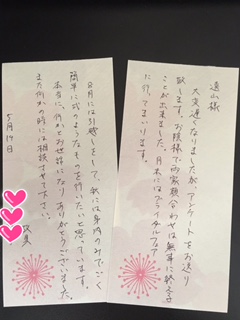 遠山様
大変遅くなりましたが アンケートをお送り
致します。お陰様で両家顔合わせは無事に終える
ことが出来ました。月末にはブライダルフェア
に行ってまいります。
8月には引越しをして、秋には身内のみでごく
簡単に式のようなものを行いたいと思っています。
本当に、何かとお世話になり ありがとうございました。
また何かの時には相談させて下さい。
5月14日